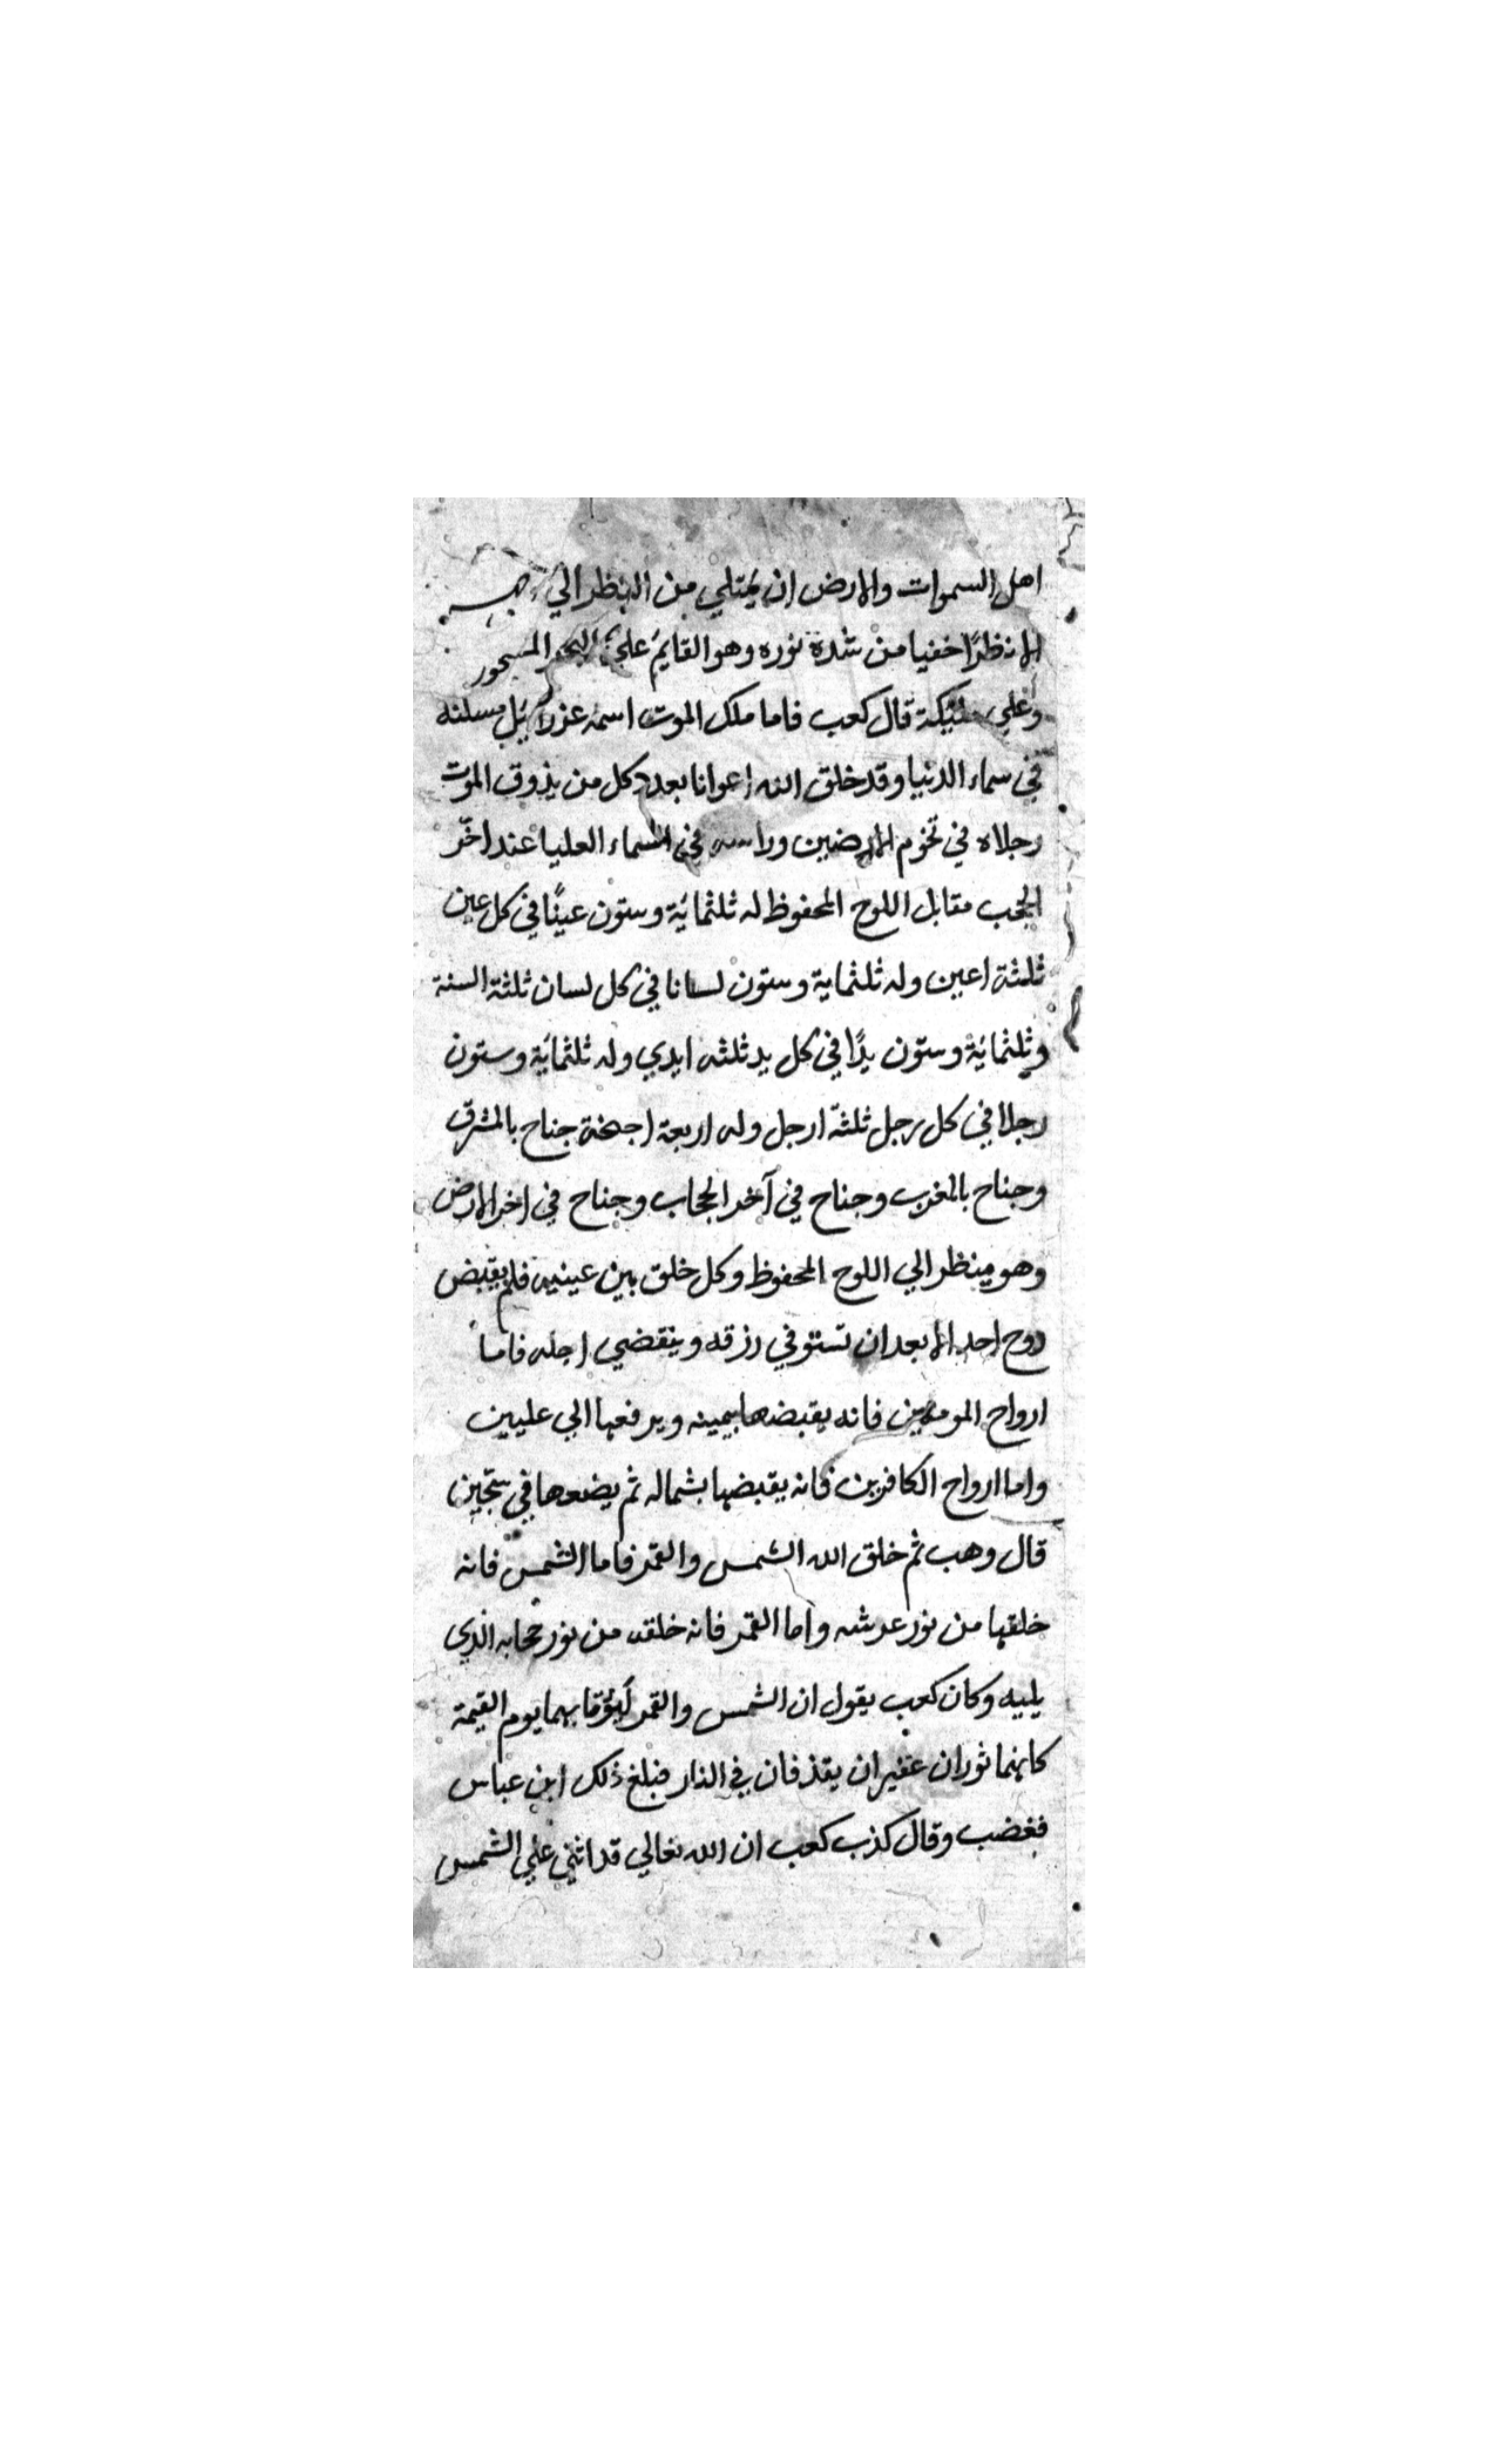 اهل السموات والارض ان يمتلي من النظر الي
الا نظرًا خفيا من شدة نوره وهو القايم علي البحر المسجور
وعلي مليكة قال كعب فاما ملك الموت اسمه عزرآئيل مسكنه
في سماء الدنيا وقد خلق الله اعوانا بعدد كل من يذوق الموت
رجلاه في تخوم الارضين وراسه في السماء العليا عند اخر
الحجب مقابل اللوح المحفوظ له ثلثمائة وستون عينًا في كل عين
ثلثة اعين وله ثلثماية وستون لسانا في كل لسان ثلثة السنة
وثلثمائة وستون يدًا في كل يد ثلثه ايدي وله ثلثمائة وستون
رجلا في كل رجل ثلثة ارجل وله اربعة اجنحة جناح بالمشرق
وجناح بالمغرب وجناح في آخر الحجاب وجناح في اخر الارض
وهو ينظر الي اللوح المحفوظ وكل خلق بين عينيه فلم يقبض
روح احد الا بعد ان تستوفي رزقه وينقضي اجله فاما
ارواح المومنين فانه يقبضها بيمينه ويرفعها الي عليين
واما ارواح الكافرين فانه يقبضها بشماله ثم يضعها في سجّين
قال وهب ثم خلق الله الشمس والقمر فاما الشمس فانه
خلقها من نور عرشه واما القمر فانه خلقه من نور حجابه الذي
يليه وكان كعب يقول ان الشمس والقمر ليؤتا بهما يوم القيمة
كانهما ثوران عقيران يقذفان في النار فبلغ ذلك ابن عباس
فغضب وقال كذب كعب ان الله تعالي قد اثني علي الشمس